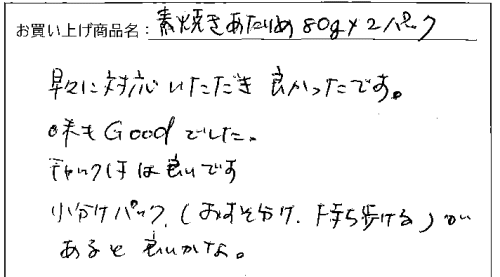 お買い上げ商品名:素焼きあたりめ80g×2パック
早々に対応いただき良かったです。
味もGoodでした。
チャック付は良いです
小分けパック、(おすそ分け、持ち歩ける)が
あると良いかな。